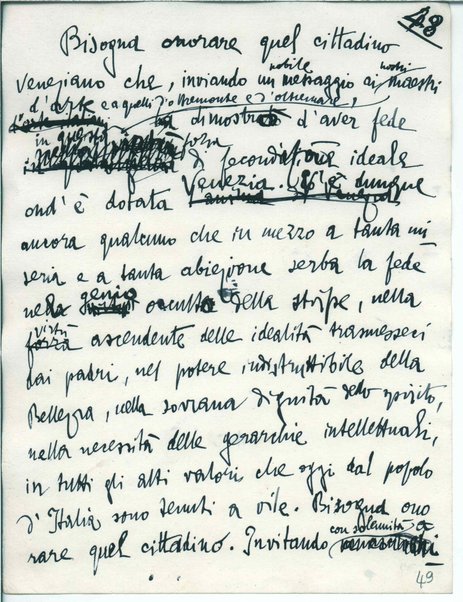 48
Bisogna onorare quel cittadino
nobile nostri
veneziano che, inviando un messaggio ai maestri
d'arte e a quelli d'oltremonte e d'oltremare,
ha dimostrato d'aver fede
in questa forza
di fecondazione ideale
ond'è dotata Venezia. C'è dunque
ancora qualcuno che in mezzo a tanta mi
seria e a tanta abiezione serba la fede
genio
nel occulto della stirpe, nella
virtù
forza ascendente delle idealità trasmesseci
dai padri, nel potere indistruttibile della
Bellezza, nella sovrana dignità dello spirito,
nella necessità delle gerarchie intellettuali,
in tutti gli alti valori che oggi dal popolo
d'Italia sono tenuti a vile. Bisogna ono
con solennità a
rare quel cittadino. Invitando
49